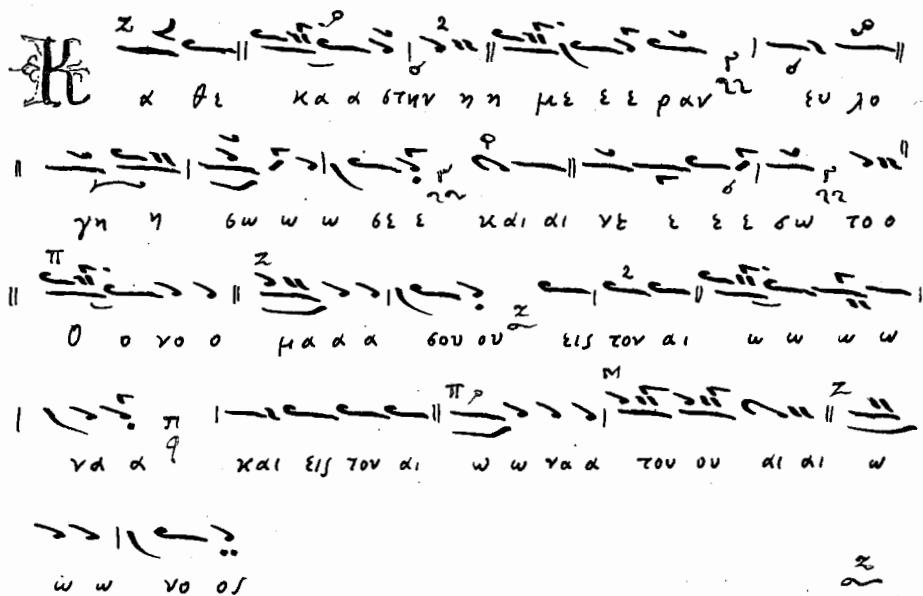 Κ α θε κα α στην η η με ε ε ραν ευ λο
γη η σω ω ω σε ε και αι νε ε ε ε σω το ο
Ο ο νο ο μα α α α σου ου εις τον αι ω ω ω ω
να α και εις τον αι ω ω να α του ου αι αι ω
ω ω νο ος